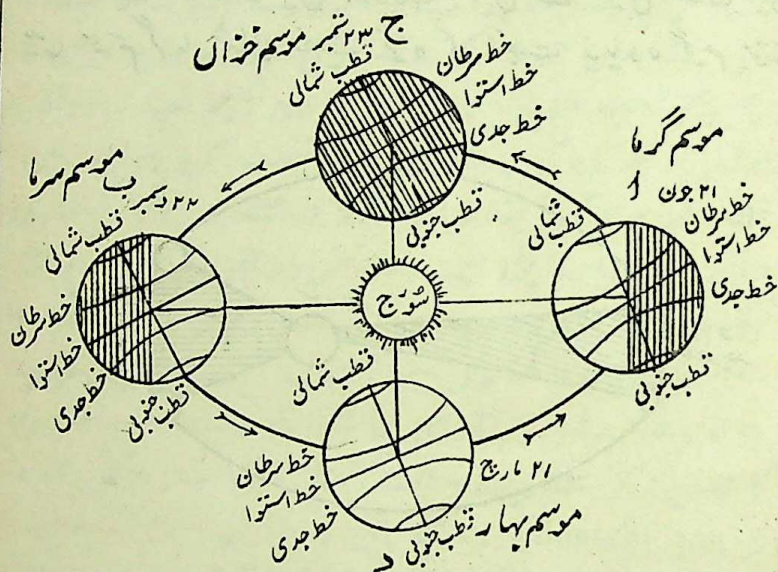 ج ۲۳ ستمبر موسم خزاں
قطب شمالی
خط سرطان
خط استوا
خط جدی
قطب جنوبی
موسم گرما
۲۱ جون ا
قطب شمالی
خط سرطان
خط استوا
خط جدی
قطب جنوبی
موسم سرما
ب
۲۲ دسمبر
قطب شمالی
خط سرطان
خط استوا
خط جدی
قطب جنوبی
سورج
قطب شمالی
خط سرطان
خط استوا
خط جدی
۲۱ مارچ
قطب جنوبی
موسم بہار
د